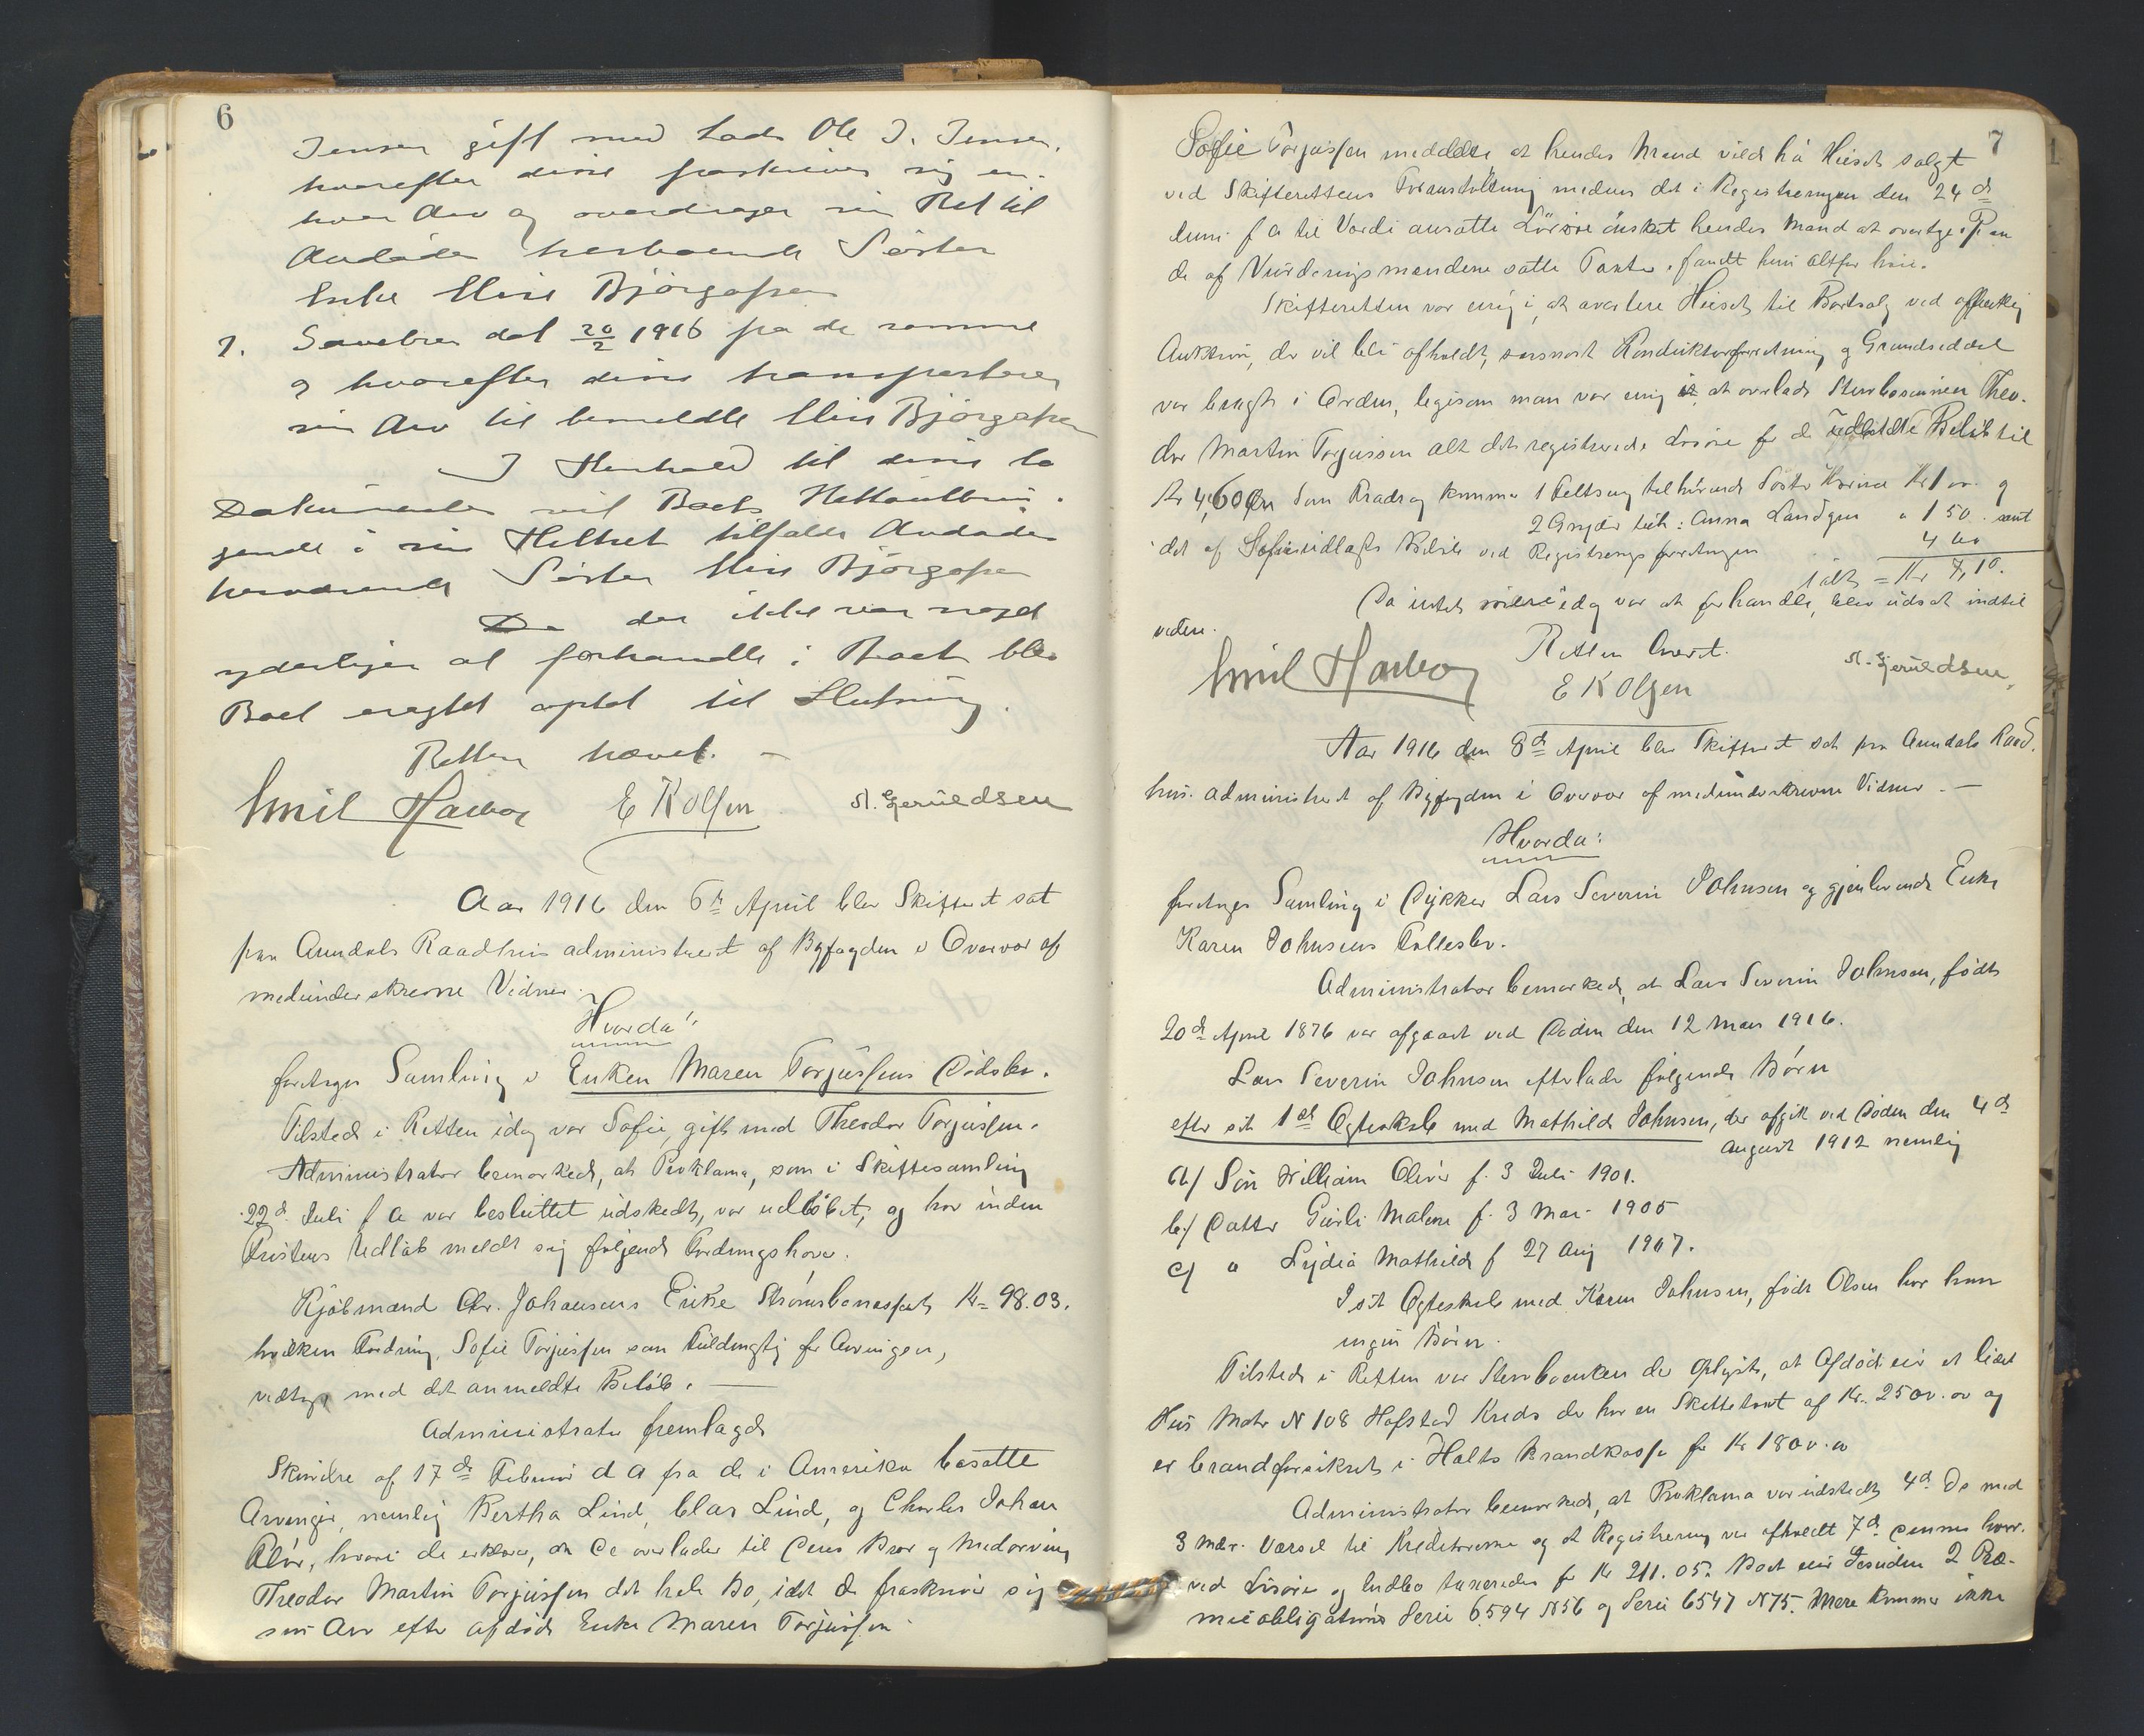 6
Jensen gift med Lods Ole J. Jensen,
hvorefter disse fraskriver sig en-
hver Arv og overdrager sin Ret til
Avdødes herboende Søster
Enke Elise Bjørgessen
2. Samebrev dat 20/2 1916 fra de samme
og hvorefter disse transporterer
sin Arv til bemeldte Elise Bjørgessen
I Henhold til disse to
Dokumenter vil Boets
i sin Helhet tilfalde Avdødes
herværende Søster Elise Bjørgessen
Da der ikke var noget
yderligere at forhandle i Boet blev
Boet eragtet optat til Slutning.
Retten hævet. —
Emil Harboe E K Olsen N. Gjeruldsen
Aar 1916 den 6te April blev Skifteret sat
paa Arendals Raadhus administreret af Byfogden i Overvær af
medunderskrevne Vidner.
Hvorda:
foretoges Samling i Enken Maren Torjussens Dødsbo.
Tilstede i Retten idag var Sofie, gift med Theodor Torjussen.
Administrator bemærkede, at Proklama, som i Skiftesamling
22de Juli f A var besluttet udstedt, var udløbet, og har inden
Fristens Udløb meldt sig følgende Fordringshaver.
Kjøbmand Chr. Johansens Enke Strømsbonesset Kr. 98.03.
hvilken Fordring, Sofie Torjussen som Fuldmægtig for Arvingen,
vedtog med det anmeldte Beløb. —
Administrator fremlagde
Skrivelse af 17de Februar d A fra de i Amerika bosatte
Arvinger, nemlig Bertha Lind, Clas Lind, og Charles Johan
hvori de erklærer, at De overlader til Deres Bror og Medarving
Theodor Martin Torjussen det hele Bo, idet de fraskriver sig
sin Arv efter afdøde Enke Maren Torjussen
7
Sofie Torjussen meddelte at hendes Mand vilde ha Huset solgt
ved Skifterettens Foranstaltning medens det i Registreringen den 24de
Juni f A til Værdi ansatte Løsøre ønsket hendes Mand at overtage. Den
de af Vurderingsmændene satte Taxter fandt hun altfor høie.
Skifteretten var enig i, at avertere Huset til Bortsalg ved offentlig
Auktion, der vil bli afholdt, saasnart Konduktørforretning og Grundseddel
var bragt i Orden, ligesom man var enig i at overlade Stervbosønnen Theo-
dor Martin Torjussen alt det registrerede Løsøre for de udbetalte Beløb til
Kr 4,60 Øre Som Fradrag kommer 1 Feltseng tilhørende Søster Karine Kr 1 00 og
2 Gryder tilh: Anna Landgren " 1 50 samt
det af Sofie udlagte Beløb ved Registreringsforretningen 4 60
ialt = Kr 7,10.
Da intet videre idag var at forhandle, blev udsat indtil
videre.
Retten hævet.
Emil Harboe E K Olsen N. Gjeruldsen,
Aar 1916 den 8de April blev Skifteret sat paa Arendals Raad-
hus. administreret af Byfogden i Overvær af medunderskrevne Vidner. —
Hvorda:
foretoges Samling i Dykker Lars Severin Johnsen og gjenlevende Enke
Karen Johnsens Fællesbo.
Administrator bemærkede, at Lars Severin Johnsen, født
20de April 1876 var afgaaet ved Døden den 12 Mars 1916.
Lars Severin Johnsen efterlader følgende Børn
efter sit 1ste Egteskab med Mathilde Johnsen, der afgik ved Døden den 4de
August 1912 nemlig
a/ Søn William Oliver f. 3 Juli 1901.
b/ Datter Gurli Malene f. 3 Mai 1905
c/ " Lydia Mathilde f 27 Aug 1907.
I sit Egteskab med Karen Johnsen, født Olsen har han
ingen Børn.
Tilstede i Retten var Stervboenken der oplyste, at Afdøde eier et lidet
Hus Matr N 108 Hofstad Kreds der har en Skattetaxt af Kr. 250 0. 00 og
er brandforsikret i Holts Brandkasse for Kr 180 0. 00
Administrator bemærkede, at Proklama var udstedt 4de Ds med
3 Mdr. Varsel til Kreditorerne og at Registrering var afholdt 7de dennes hvor-
ved Løsøre og Indbo taxeredes for Kr 211. 05. Boet eier desuden 2 Præ-
mieobligationer Serie 6594 N 56 og Serie 6547 N 75. Mere kommer ikke